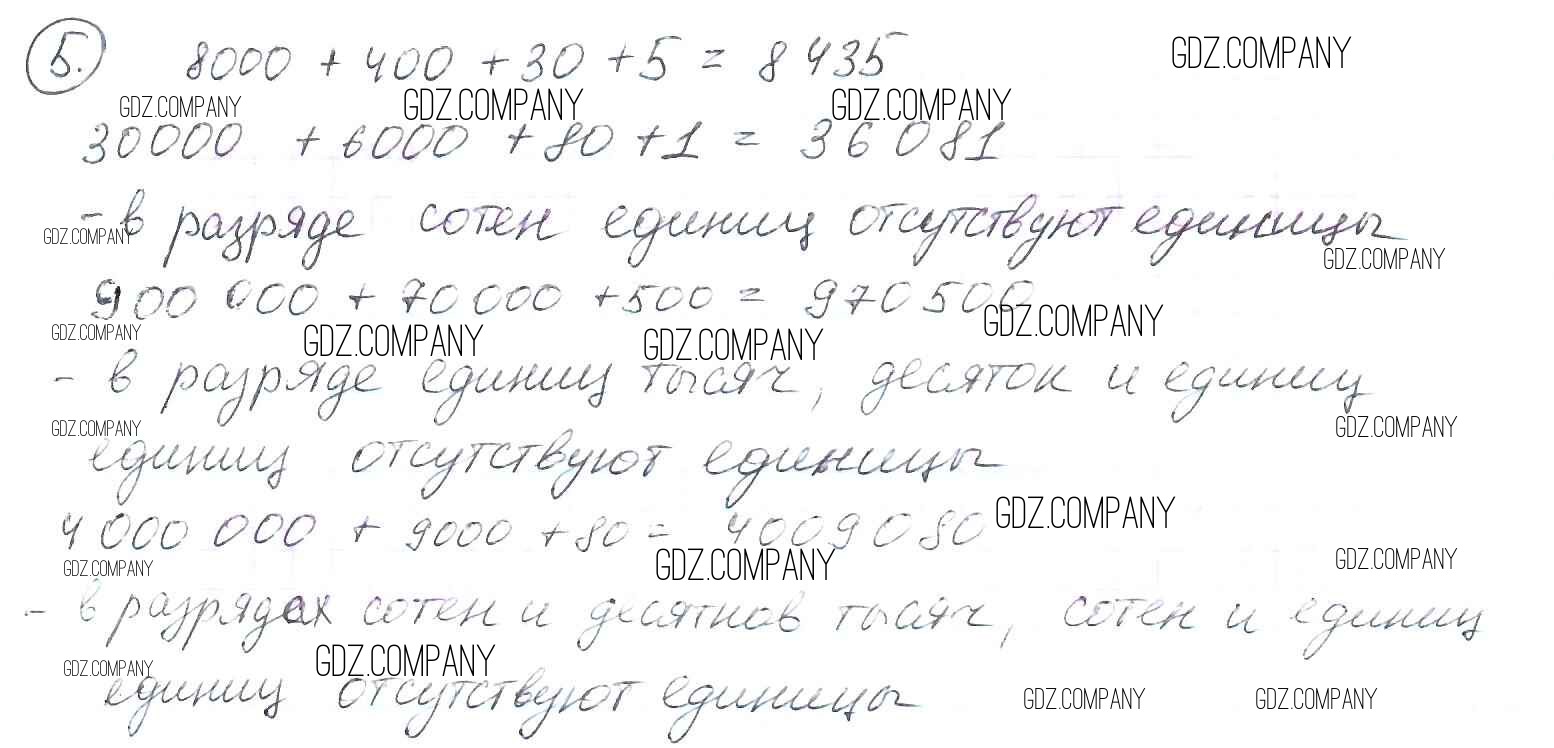 5. 8000 + 400 + 30 + 5 = 8 435 GDZ.COMPANY
GDZ.COMPANY GDZ.COMPANY GDZ.COMPANY
30000 + 6000 + 80 + 1 = 36 081
- в разряде сотен единиц отсутствуют единицы
GDZ.COMPANY GDZ.COMPANY
900 000 + 70 000 + 500 = 970 500
GDZ.COMPANY GDZ.COMPANY GDZ.COMPANY GDZ.COMPANY
- в разряде единиц тысяч, десяток и единиц
GDZ.COMPANY GDZ.COMPANY
единиц отсутствуют единицы
4 000 000 + 9000 + 80 = 4009 080 GDZ.COMPANY
GDZ.COMPANY GDZ.COMPANY GDZ.COMPANY
- в разрядах сотен и десятков тысяч, сотен и единиц
GDZ.COMPANY GDZ.COMPANY
единиц отсутствуют единицы GDZ.COMPANY GDZ.COMPANY